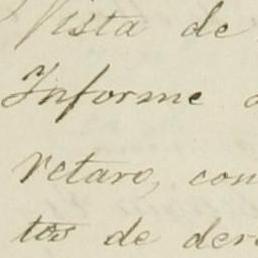 Vista de
Informe
retaro, con
tos de der